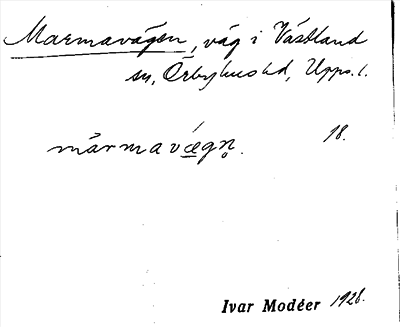 Marmavägen, väg i Västland
sn, Örbyhus hd, Upps. l.
18.
màrmavǽgn̥.
Ivar Modéer 1926.